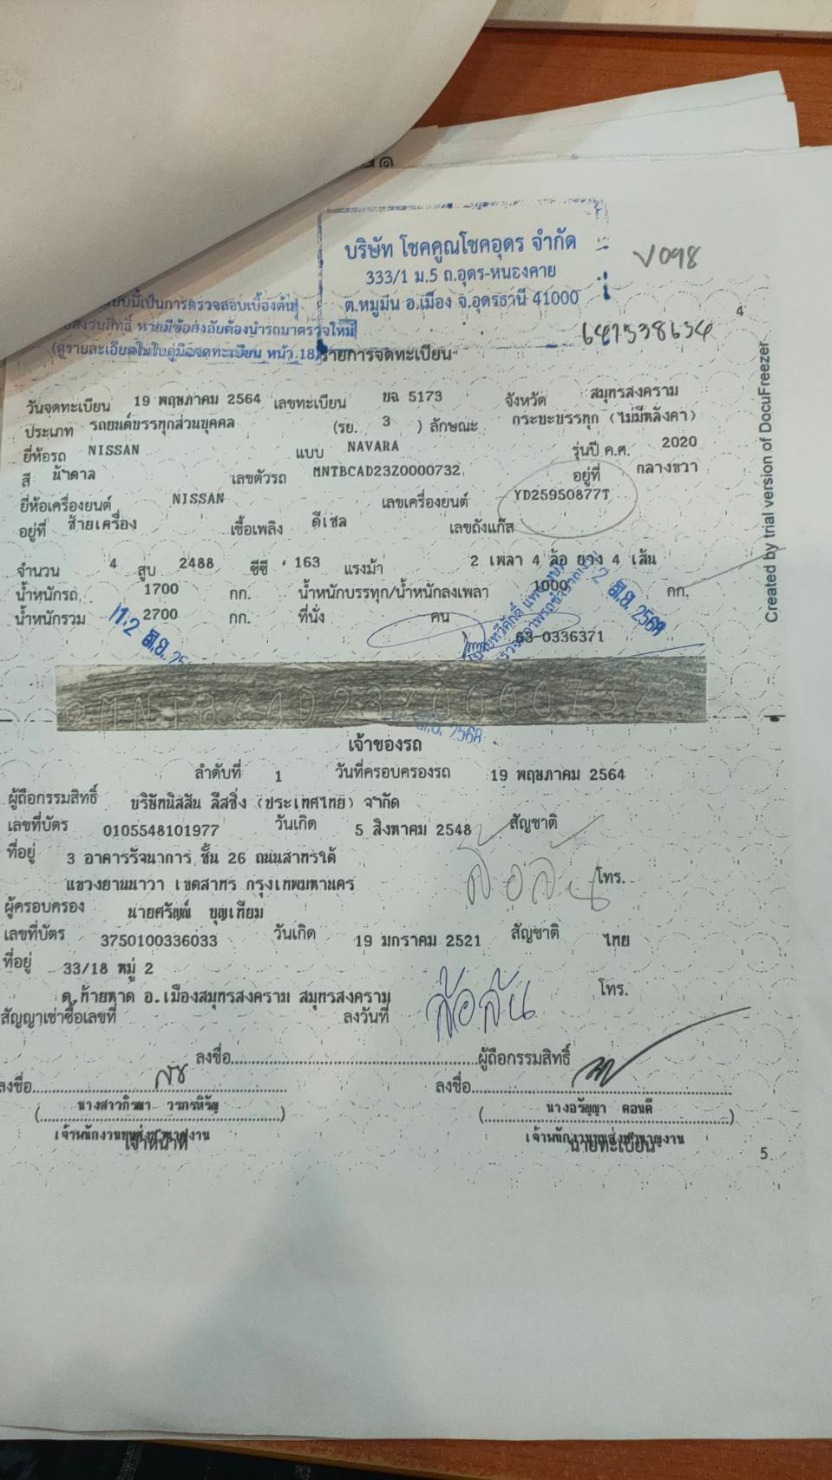 บริษัท โชคคูณโชคอุดร จำกัด
333/1 ม.5 ถ.อุดร-หนองคาย
ต.หมูม่น อ.เมือง จ.อุดรธานี 41000
V098
นี้เป็นการตรวจสอบเบื้องต้น
หากมีข้อสงสัยต้องนำรถมาตรวจใหม่
(ดูรายละเอียดในใบคู่มือจดทะเบียน หน้า 18)
4
รายการจดทะเบียน
วันจดทะเบียน 19 พฤษภาคม 2564 เลขทะเบียน ขฉ 5173 จังหวัด สมุทรสงคราม
ประเภท รถยนต์บรรทุกส่วนบุคคล (รย. 3 ) ลักษณะ กระบะบรรทุก (ไม่มีหลังคา)
ยี่ห้อรถ NISSAN แบบ NAVARA รุ่นปี ค.ศ. 2020
สี น้ำตาล เลขตัวรถ MNTBCAD23Z0000732 อยู่ที่ กลางขวา
ยี่ห้อเครื่องยนต์ NISSAN เลขเครื่องยนต์ YD25950877T
อยู่ที่ ซ้ายเครื่อง เชื้อเพลิง ดีเซล เลขถังแก๊ส
จำนวน 4 สูบ 2488 ซีซี 163 แรงม้า 2 เพลา 4 ล้อ ยาง 4 เส้น
น้ำหนักรถ 1700 กก. น้ำหนักบรรทุก/น้ำหนักลงเพลา 1000 กก.
น้ำหนักรวม 2700 กก. ที่นั่ง คน
63-0336371
Created by trial version of DocuFreezer
เจ้าของรถ
ลำดับที่ 1 วันที่ครอบครองรถ 19 พฤษภาคม 2564
ผู้ถือกรรมสิทธิ์ บริษัทนิสสัน ลีสซิ่ง (ประเทศไทย) จำกัด
เลขที่บัตร 0105548101977 วันเกิด 5 สิงหาคม 2548 สัญชาติ
ที่อยู่ 3 อาคารรัจนาการ ชั้น 26 ถนนสาทรใต้
แขวงยานนาวา เขตสาทร กรุงเทพมหานคร โทร.
ผู้ครอบครอง นายศรัณย์ บุญเทียม
เลขที่บัตร 3750100336033 วันเกิด 19 มกราคม 2521 สัญชาติ ไทย
ที่อยู่ 33/18 หมู่ 2
ต.ท้ายหาด อ.เมืองสมุทรสงคราม สมุทรสงคราม โทร.
สัญญาเช่าซื้อเลขที่ ลงวันที่
ลงชื่อ ผู้ถือกรรมสิทธิ์
ลงชื่อ ลงชื่อ
เจ้าหน้าที่ นายทะเบียน
5